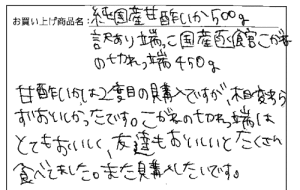 お買い上げ商品名: 純国産甘酢いか500g
訳あり端っこ国産函館こがね
の切れっ端450g
甘酢いかは2度目の購入ですが、相変わら
ずおいしかったです。こがねの切れっ端は
とてもおいしく、友達もおいしいとたくさん
食べてました。また購入したいです。